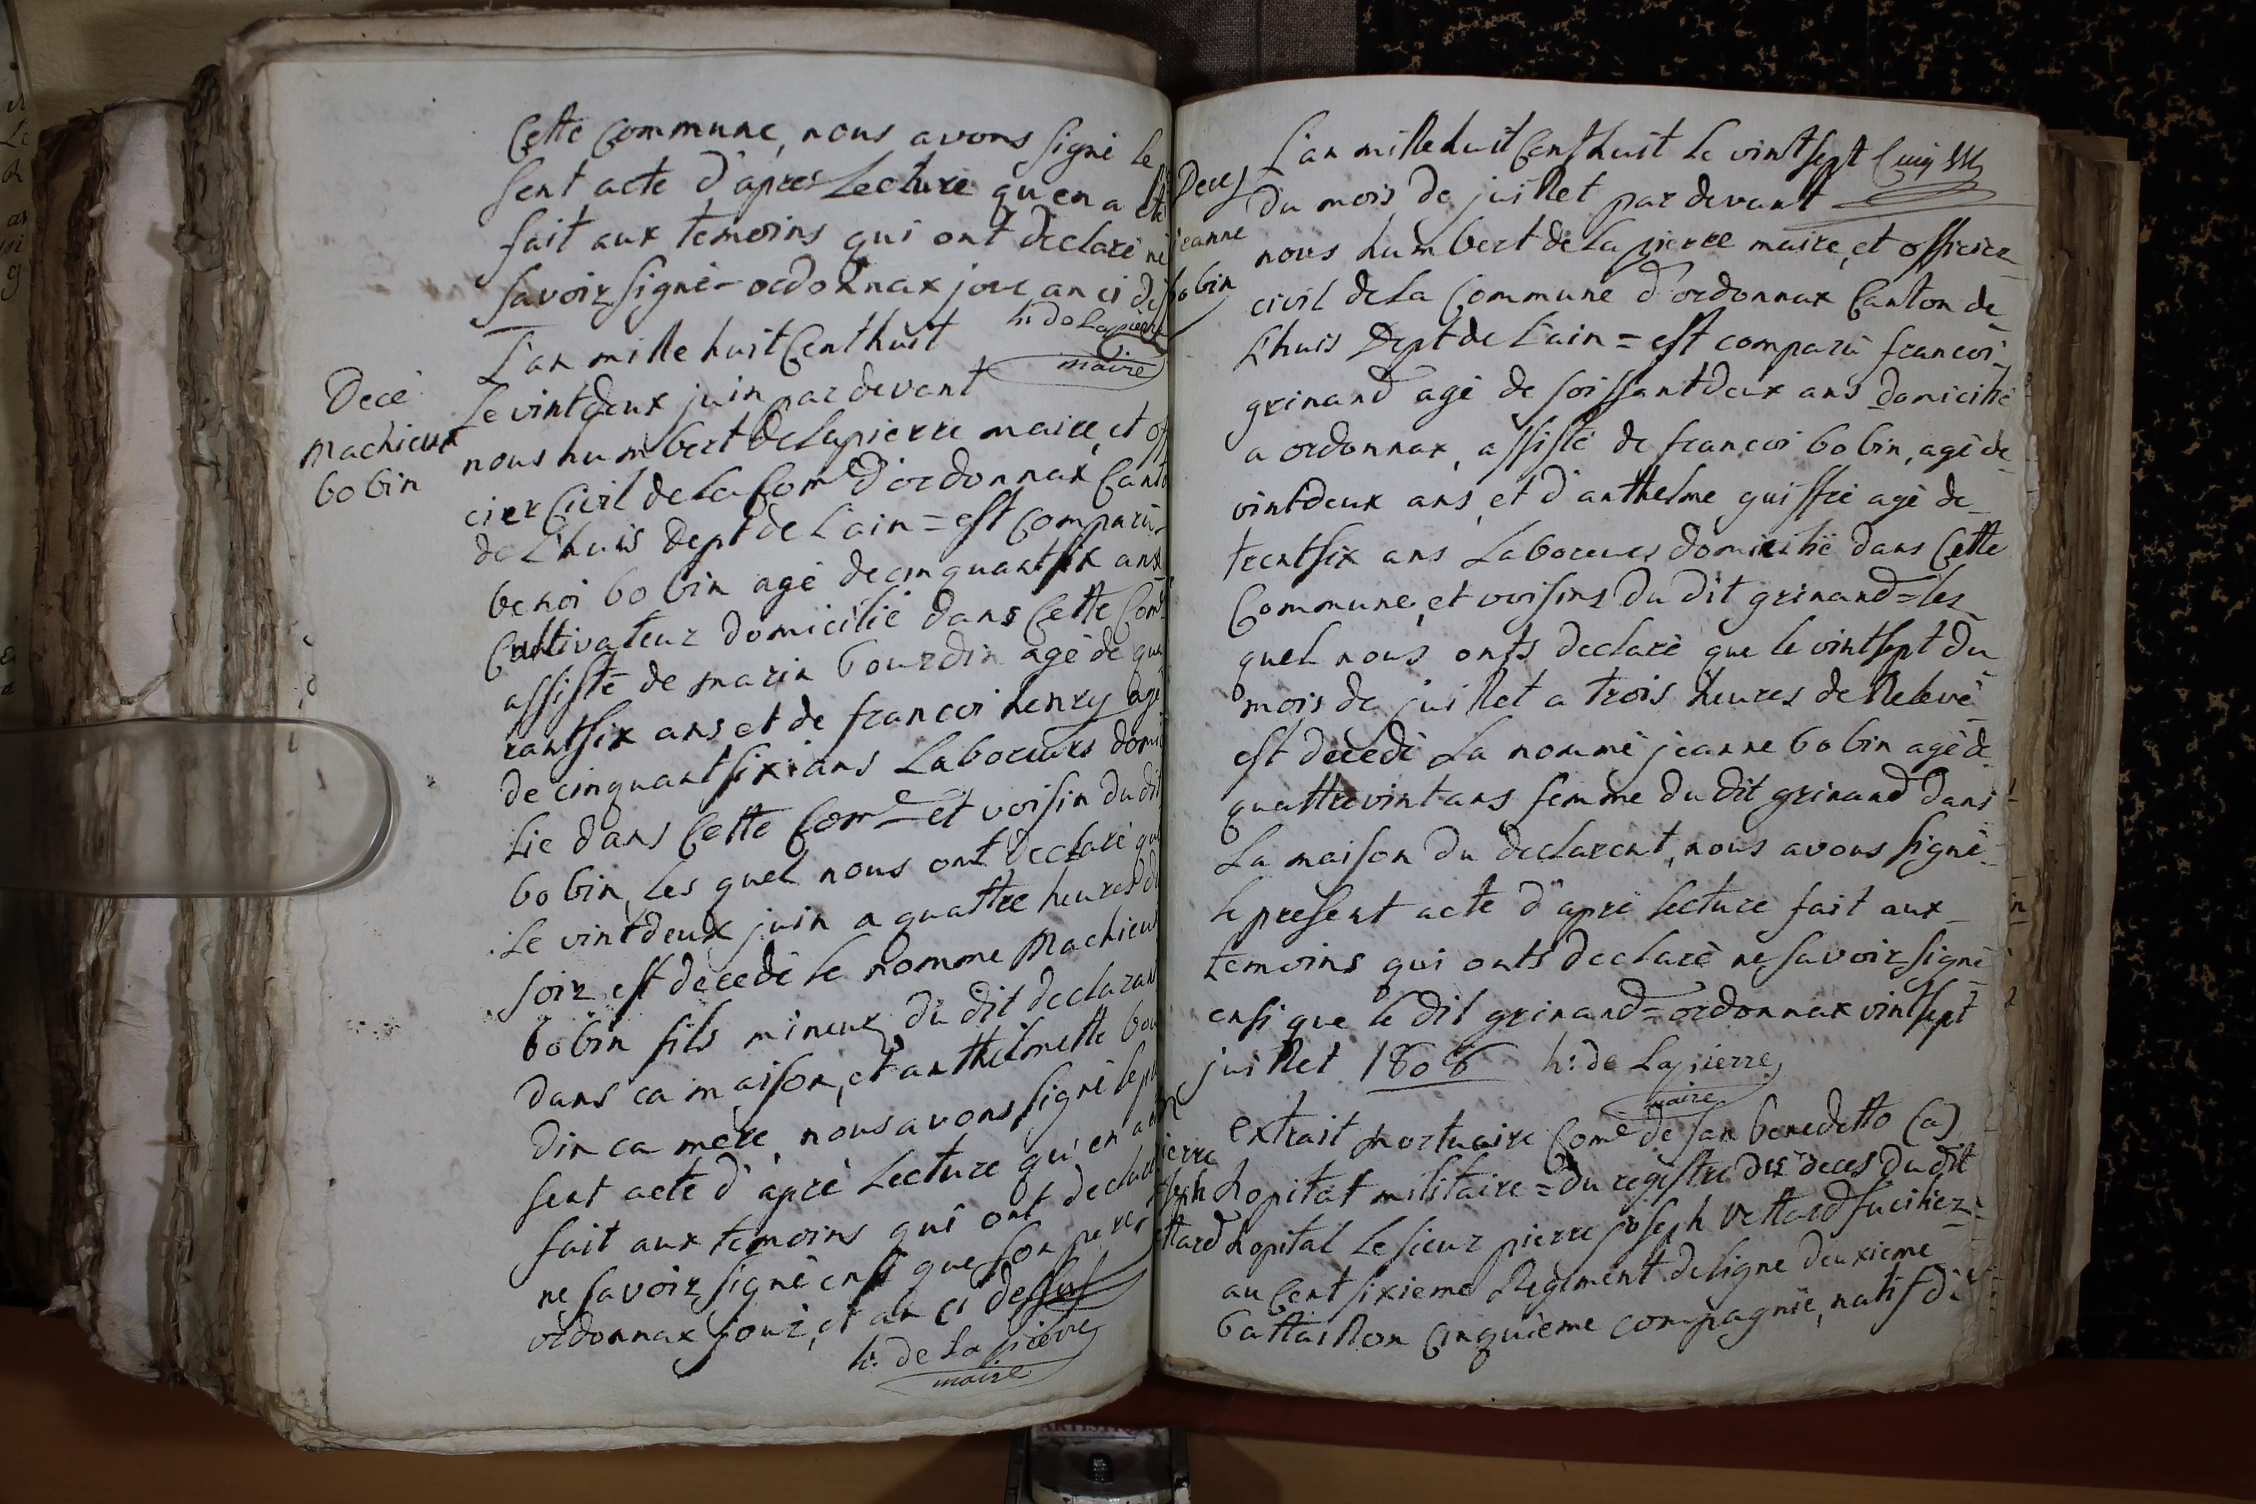 Cette Commune, nous avons signé le
sent acte d'apres Lecture qu'en a été
fait aux temoins qui ont declaré ne
savoir signé = ordonnax jour an ci des
h: de Lapierre
maire
Decé
Machieux
bobin
L'an mille huit Cent huit
Le vint deux juin par devant
nous humbert de Lapierre maire, et off
cier Civil de La Com.e d'ordonnax, Canto
de L'huis Dept de L'ain = est Comparù
benoi bobin agé de cinquant six ans
Cultivateur domicilié dans Cette Com.e
assisté de marin bourdin agé de qua
rantsix ans et de francoi henry agé
de cinquantsix ans Laboeurs domi
lie dans Cette Com.e et voisin du dit
bobin, Les quel nous ont declaré que
Le vintdeux juin a quattre heures du
soir est decedé Le nommé Machieux
bobin fils mineur du dit declarant
dans ca maison, et anthelmette bour
din ca mere, nous avons signé le pre
sent acte d'aprè Lecture qu'en a été
fait aux temoins qui ont declaré
ne savoir signé ensi que son pere
ordonnax jour, et an ci dessus
h: de Lapierre
maire
Deces
jeanne
bobin
L'an mille huit Cent huit Le vintsept
du mois de juillet par devant
nous humbert de Lapierre maire, et officier
civil de La Commune d'ordonnax Canton de
L'huis Dept de L'ain = est comparù francoi
grinand agé de soissantdeux ans domicilié
a ordonnax, assisté de francoi bobin, agé de
vintdeux ans, et d'anthelme guiffré agé de
trentsix ans Laboeurs domicilié dans Cette
Commune, et voisins du dit grinand = les
quel nous onts declaré que le vintsept du
mois de juillet a trois heures de Relevé
est decedé La nommé jeanne bobin agé de
quattrevint ans femme du dit grinand dans
La maison du declarent, nous avons signé
le present acte d'apré lecture fait aux
temoins qui onts declaré ne savoir signé
ensi que le dit grinand = ordonnax vintsept
juillet 1808 h: de Lapierre
maire
extrait mortuaire Com.e de san benedetto (a)
hopital militaire = du registre des deces du dit
hopital Le sieur pierre joseph Vettard fucilier
au Cent sixieme Regiment de ligne deuxieme
battaillon cinquieme compagnie, natif d